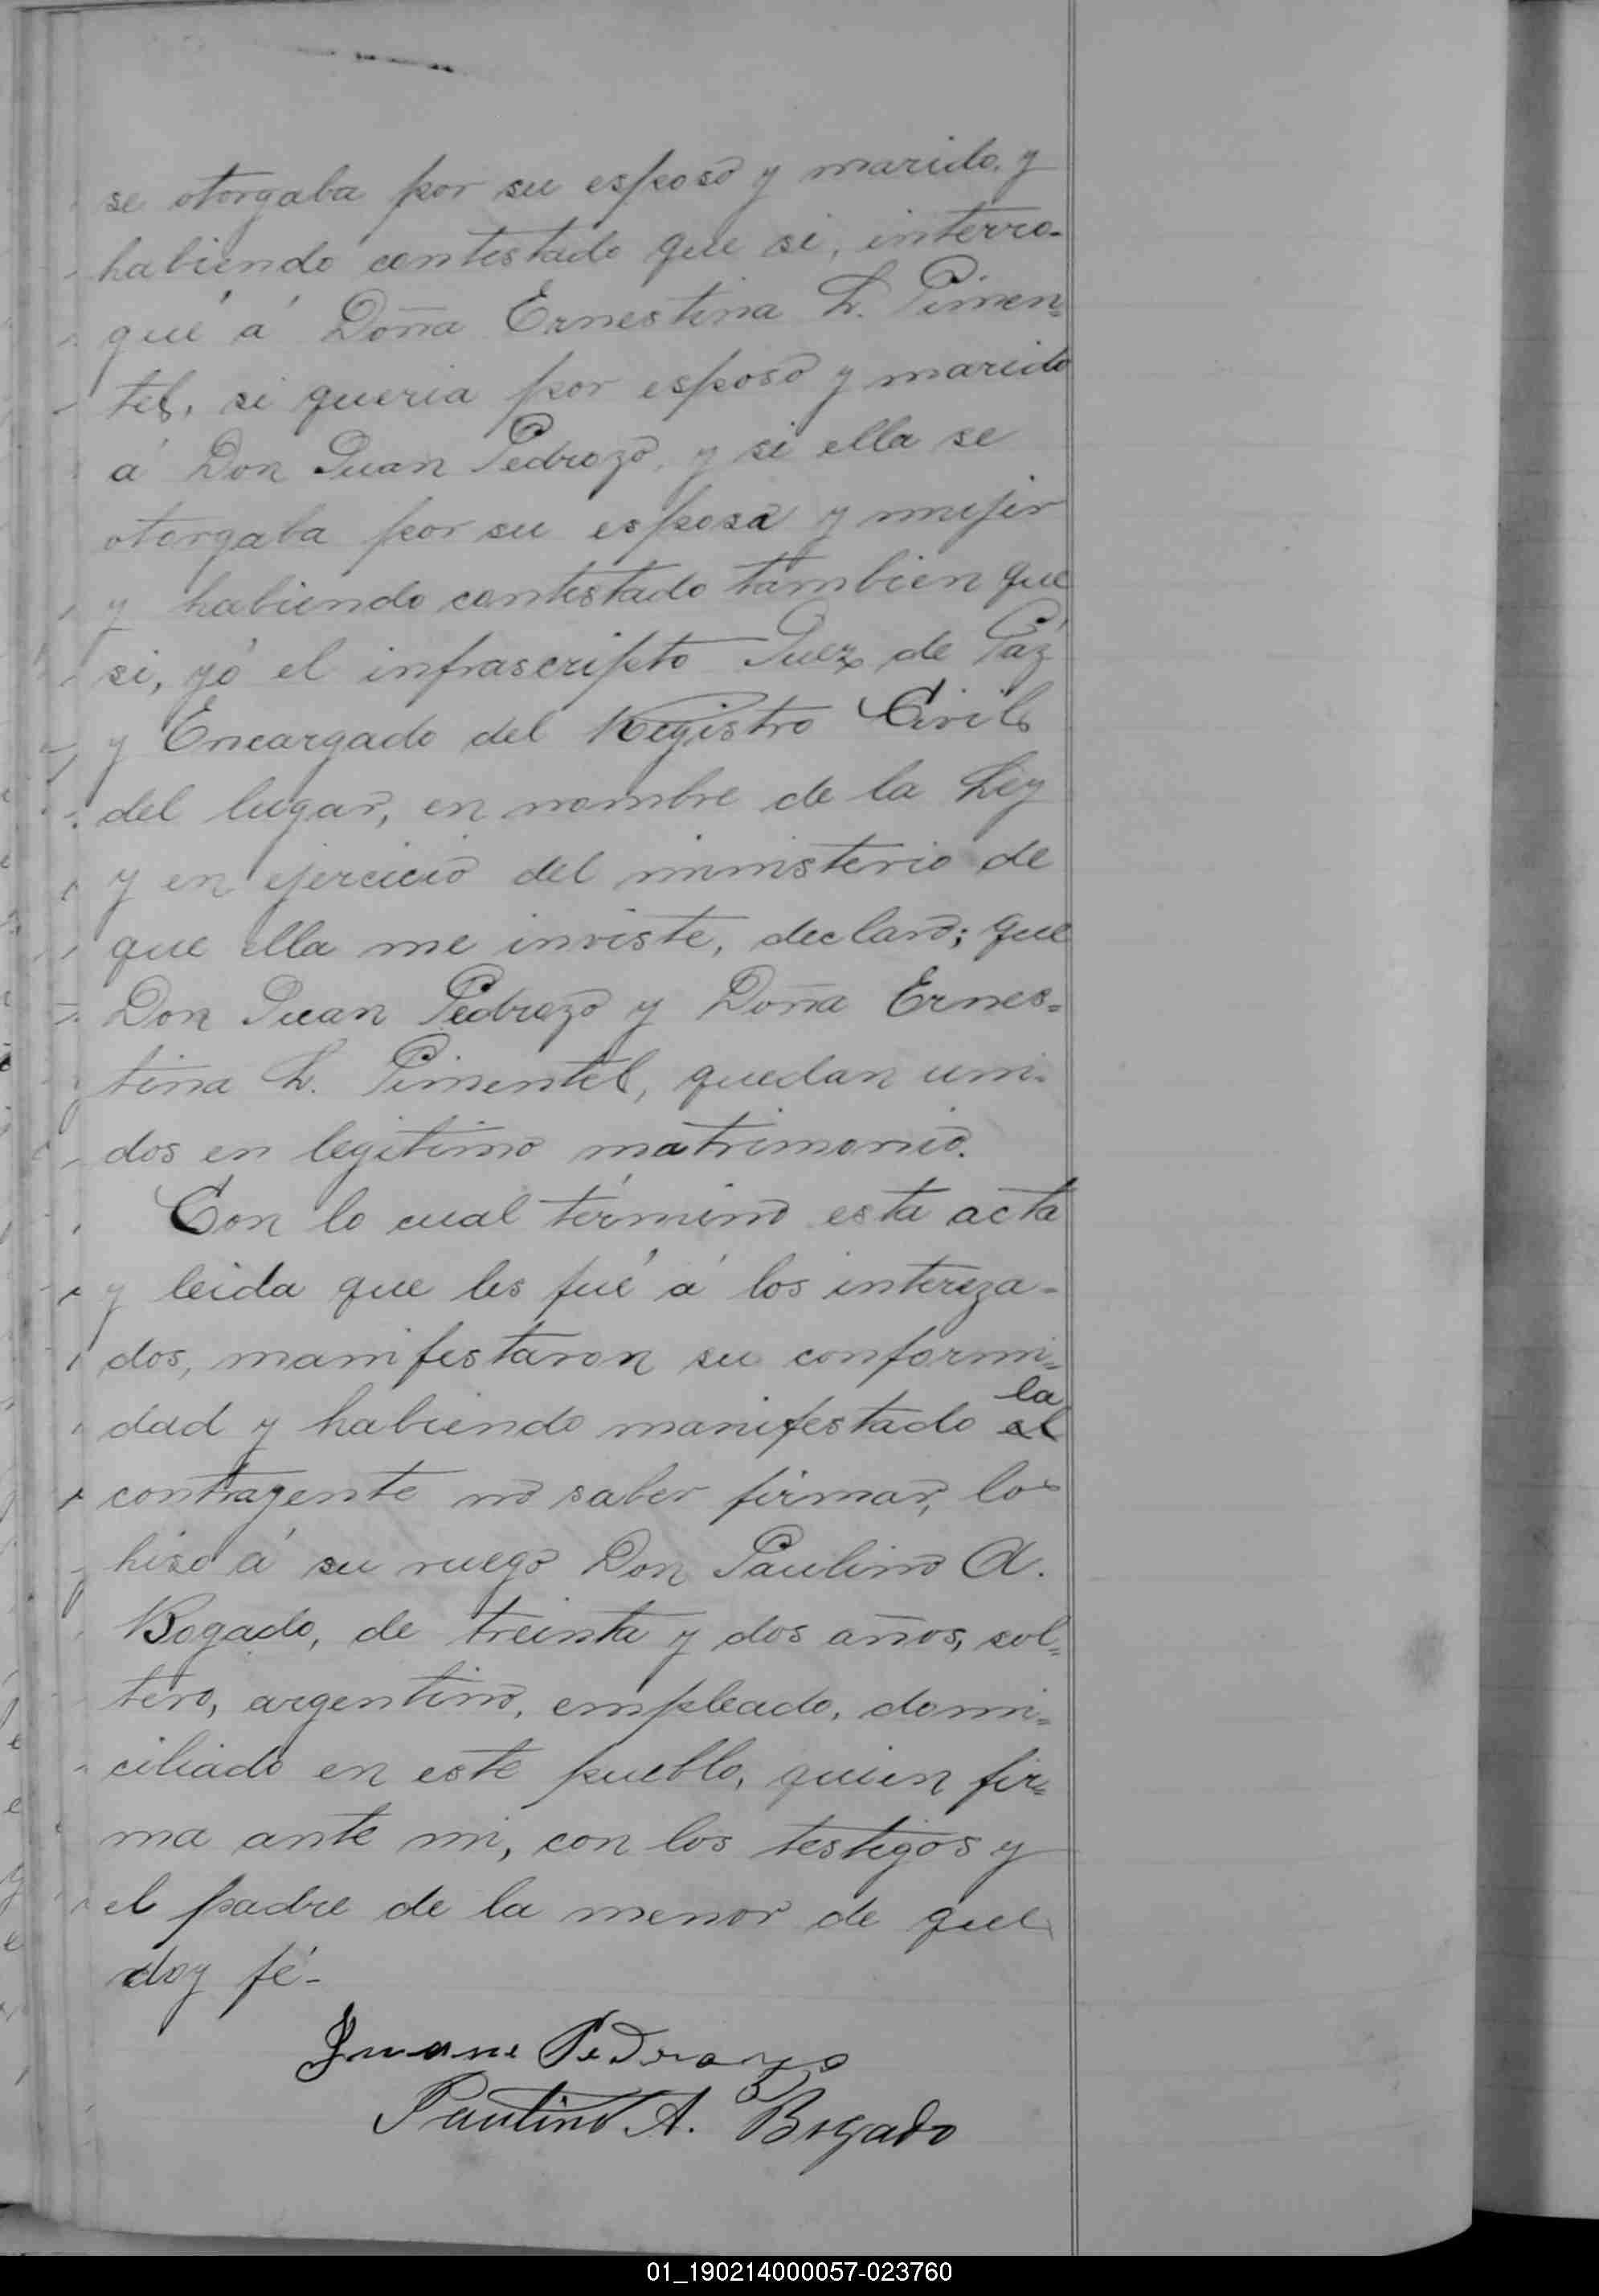 se otorgaba por su esposo y marido, y
habiendo contestado que si, interro-
gué á Doña Ernestina L. Pimen=
tel, si queria por esposo y marido
á Don Juan Pedrozo, y si ella se
otorgaba por su esposa y mujer
y habiendo contestado tambien que
si, yó el infrascripto Juez de Páz
y Encargado del Registro Civil
del lugar, en nombre de la Ley
y en ejercicio del ministerio de
que ella me inviste, declaro; que
Don Juan Pedrozo y Doña Ernes=
tina L. Pimentel, quedan uni-
dos en legitimo matrimonio.
Con lo cual términó esta acta
y leida que les fué á los intereza-
dos, manifestaron su conformi=
la
dad y habiendo manifestado el
contrayente no saber firmar, lo
hizo á su ruego Don Paulino A.
Bogado, de treinta y dos años, sol=
tero, argentino, empleado, domi=
ciliado en este pueblo, quien fir=
ma ante mi, con los testigos y
el padre de la menor de que
doy fé-
Juan Pedrozo
Paulino A. Bogado
01_190214000057-023760